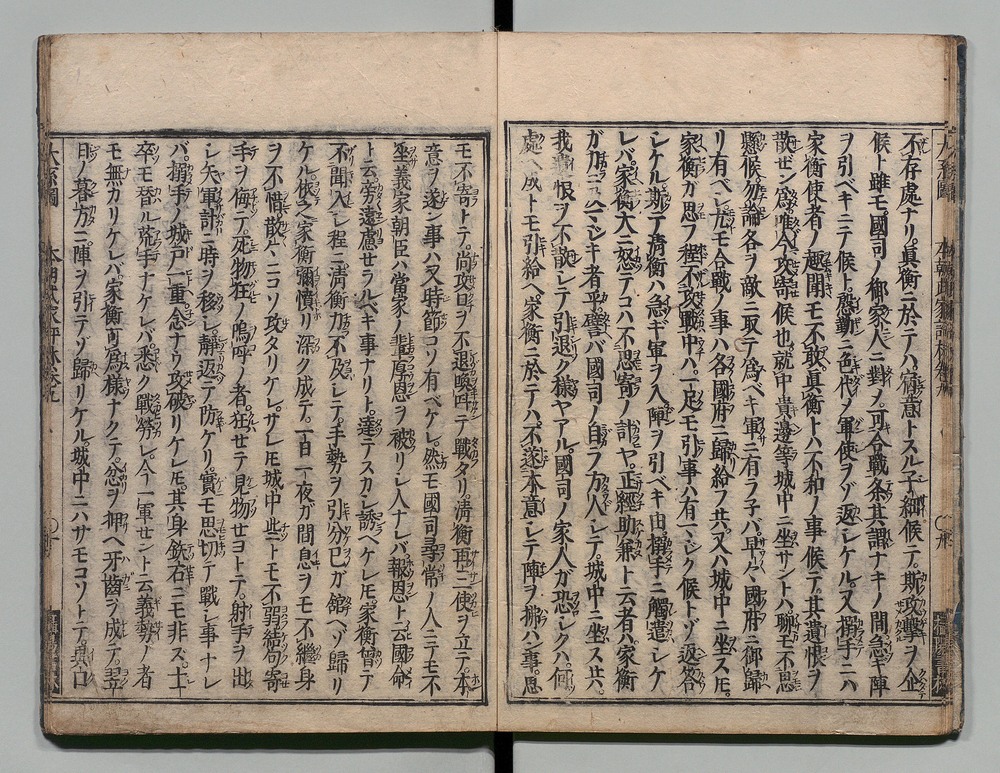 不存處ナリ。眞衡ニ於テハ、宿意トスル子細候テ。斯攻撃ヲ企
候ト雖モ。國司ノ御家人ニ對メ。可合戰条其謂ナキノ間。急キ陣
ヲ引ベキニテ候ト。慇懃ニ色代ノ軍使ヲゾ返シケル。又搦手ニハ
家衡使者ノ趣聞モ不敢。眞衡トハ不和ノ事候テ。其遺恨ヲ
散ゼン爲。唯今攻寄候也。就中貴邊等城中ニ坐サントハ。聊モ不思
懸候。勿論各ヲ敵ニ取テ爲ベキ軍ニ有ラ子バ。早々國府ニ御歸
リ有ベシ。尤モ合戰ノ事ハ各國府ニ歸給フ共。又ハ城中ニ坐ス𪜈。
家衡ガ思フ程不攻戰中ハ。一足モ引事ハ有マジク候トゾ返答
シケル。斯テ清衡ハ急ギ軍ヲ入。陣ヲ引ベキ由搦手ニ觸遣シケ
レバ。家衡大ニ怒テ。コハ不思寄ノ計ヤ。正經助兼ト云者ハ。家衡
ガ刀ニスマジキ者乎。譬バ國司ノ自ラ方人シテ。城中ニ坐ス共。
我恨ヲ不散シテ引退ク樣ヤアル。國司ノ家人ガ恐シクハ。何
處ヘ成トモ引給ヘ。家衡ニ於テハ。不遂本意シテ陣ヲ拂ハン事。思
モ不寄トテ。尚攻口ヲ不退喚叫テ戰タリ。清衡再三使ヲ立テ。本
意ヲ遂ン事ハ又時節コソ有ベケレ。然モ國司尋常ノ人ニテモ不
坐。義家朝臣ハ當家ノ輩厚恩ヲ被リシ人ナレバ。報恩ト云國命
ト云。旁遠慮セラルベキ事ナリト。達テスカシ誘ヘケレ𪜈。家衡曾テ
不聞入シ程ニ。清衡力不及シテ。手勢ヲ引分己ガ舘ヘゾ歸リ
ケル。依之家衡彌憤リ深ク成テ。一百一夜ガ間息ヲモ不繼。身
ヲ不惜散々ニコソ攻タリケレ。サレ𪜈城中些トモ不弱。結句寄
手ヲ侮テ。死物狂ノ嗚呼ノ者。狂セテ見物セヨトテ。射手ヲ出
シ。矢軍計ニ時ヲ移シ。靜返テ防ケリ。實モ思切テ戰シ事ナレ
バ。搦手ノ城戸一重。念ナウ攻破リケレ𪜈。其身鉄石ニモ非ズ。士
卒モ替ル荒手ナケレバ。悉ク戰勞レ。今一軍セントニ云義勢ノ者
モ無カリケレバ。家衡可爲樣ナクテ。忿ヲ押ヘ。牙齒ヲ成テ。翌
日ノ暮方ニ。陣ヲ引テゾ歸リケル。城中ニハサモコソトテ。眞